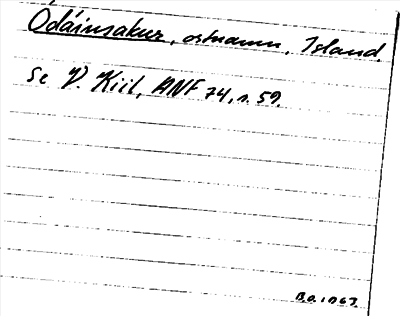 Odáinsakur, ostnamn, Island.
Se V. Kiil, ANF 74, s. 59.
B.O. 1967